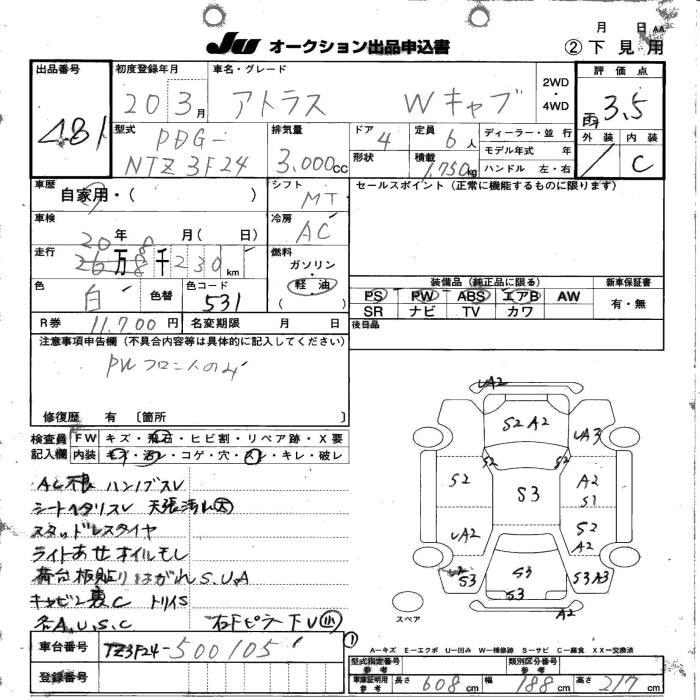 月 日 AA
JU オークション出品申込書
② 下見用
出品番号
481
初度登録年月
20 3月
車名・グレード
アトラス Wキャブ
2WD・4WD
評価点
雨 3.5
外装 内装
/ C
型式
PDG-
NTZ3F24
排気量
3.000cc
ドア
4
定員
6人
形状
積載
1,750kg
ディーラー・並行
モデル年式 年
ハンドル 左・右
車歴
自家用・( )
シフト
MT
セールスポイント (正常に機能するものに限ります)
車検
20年8月( 日)
冷房
AC
走行
26万8千230km
燃料
ガソリン・
軽油
( )
色
白
色替
色コード
531
装備品 (純正品に限る)
新車保証書
PS PW ABS エアB AW
有・無
SR ナビ TV カワ
R券 11.700円
名変期限 月 日
後日品
注意事項申告欄 (不具合内容等は具体的に記入してください)
PWフロントのみ
修復歴 有 〔箇所 〕
検査員記入欄
FW キズ・飛石・ヒビ割・リペア跡・X要
内装 キズ・汚レ・コゲ・穴・スレ・キレ・破レ
AC不良 ハンドブスレ
シートヘタリスレ 天張汚レ大
スタッドレスタイヤ
ライトあせ オイルモレ
荷台板貼りはがれS.U.A
キャビン裏C トリイS
各A.U.S.C 右Fピラー下U小
UA2
S2 A2
UA3
S2
S2
S2
S3
A2
S1
UA2
S2
A2
S3
S3
S3
S3A3
A2
スペア
A−キズ E−エクボ U−凹み W−補修跡 S−サビ C−腐食 XX−交換済
車台番号
TZ3F24-500105
①
登録番号
型式指定番号
参考
類別区分番号
参考
車庫証明用
参考
長さ 608cm
幅 188cm
高さ 217cm